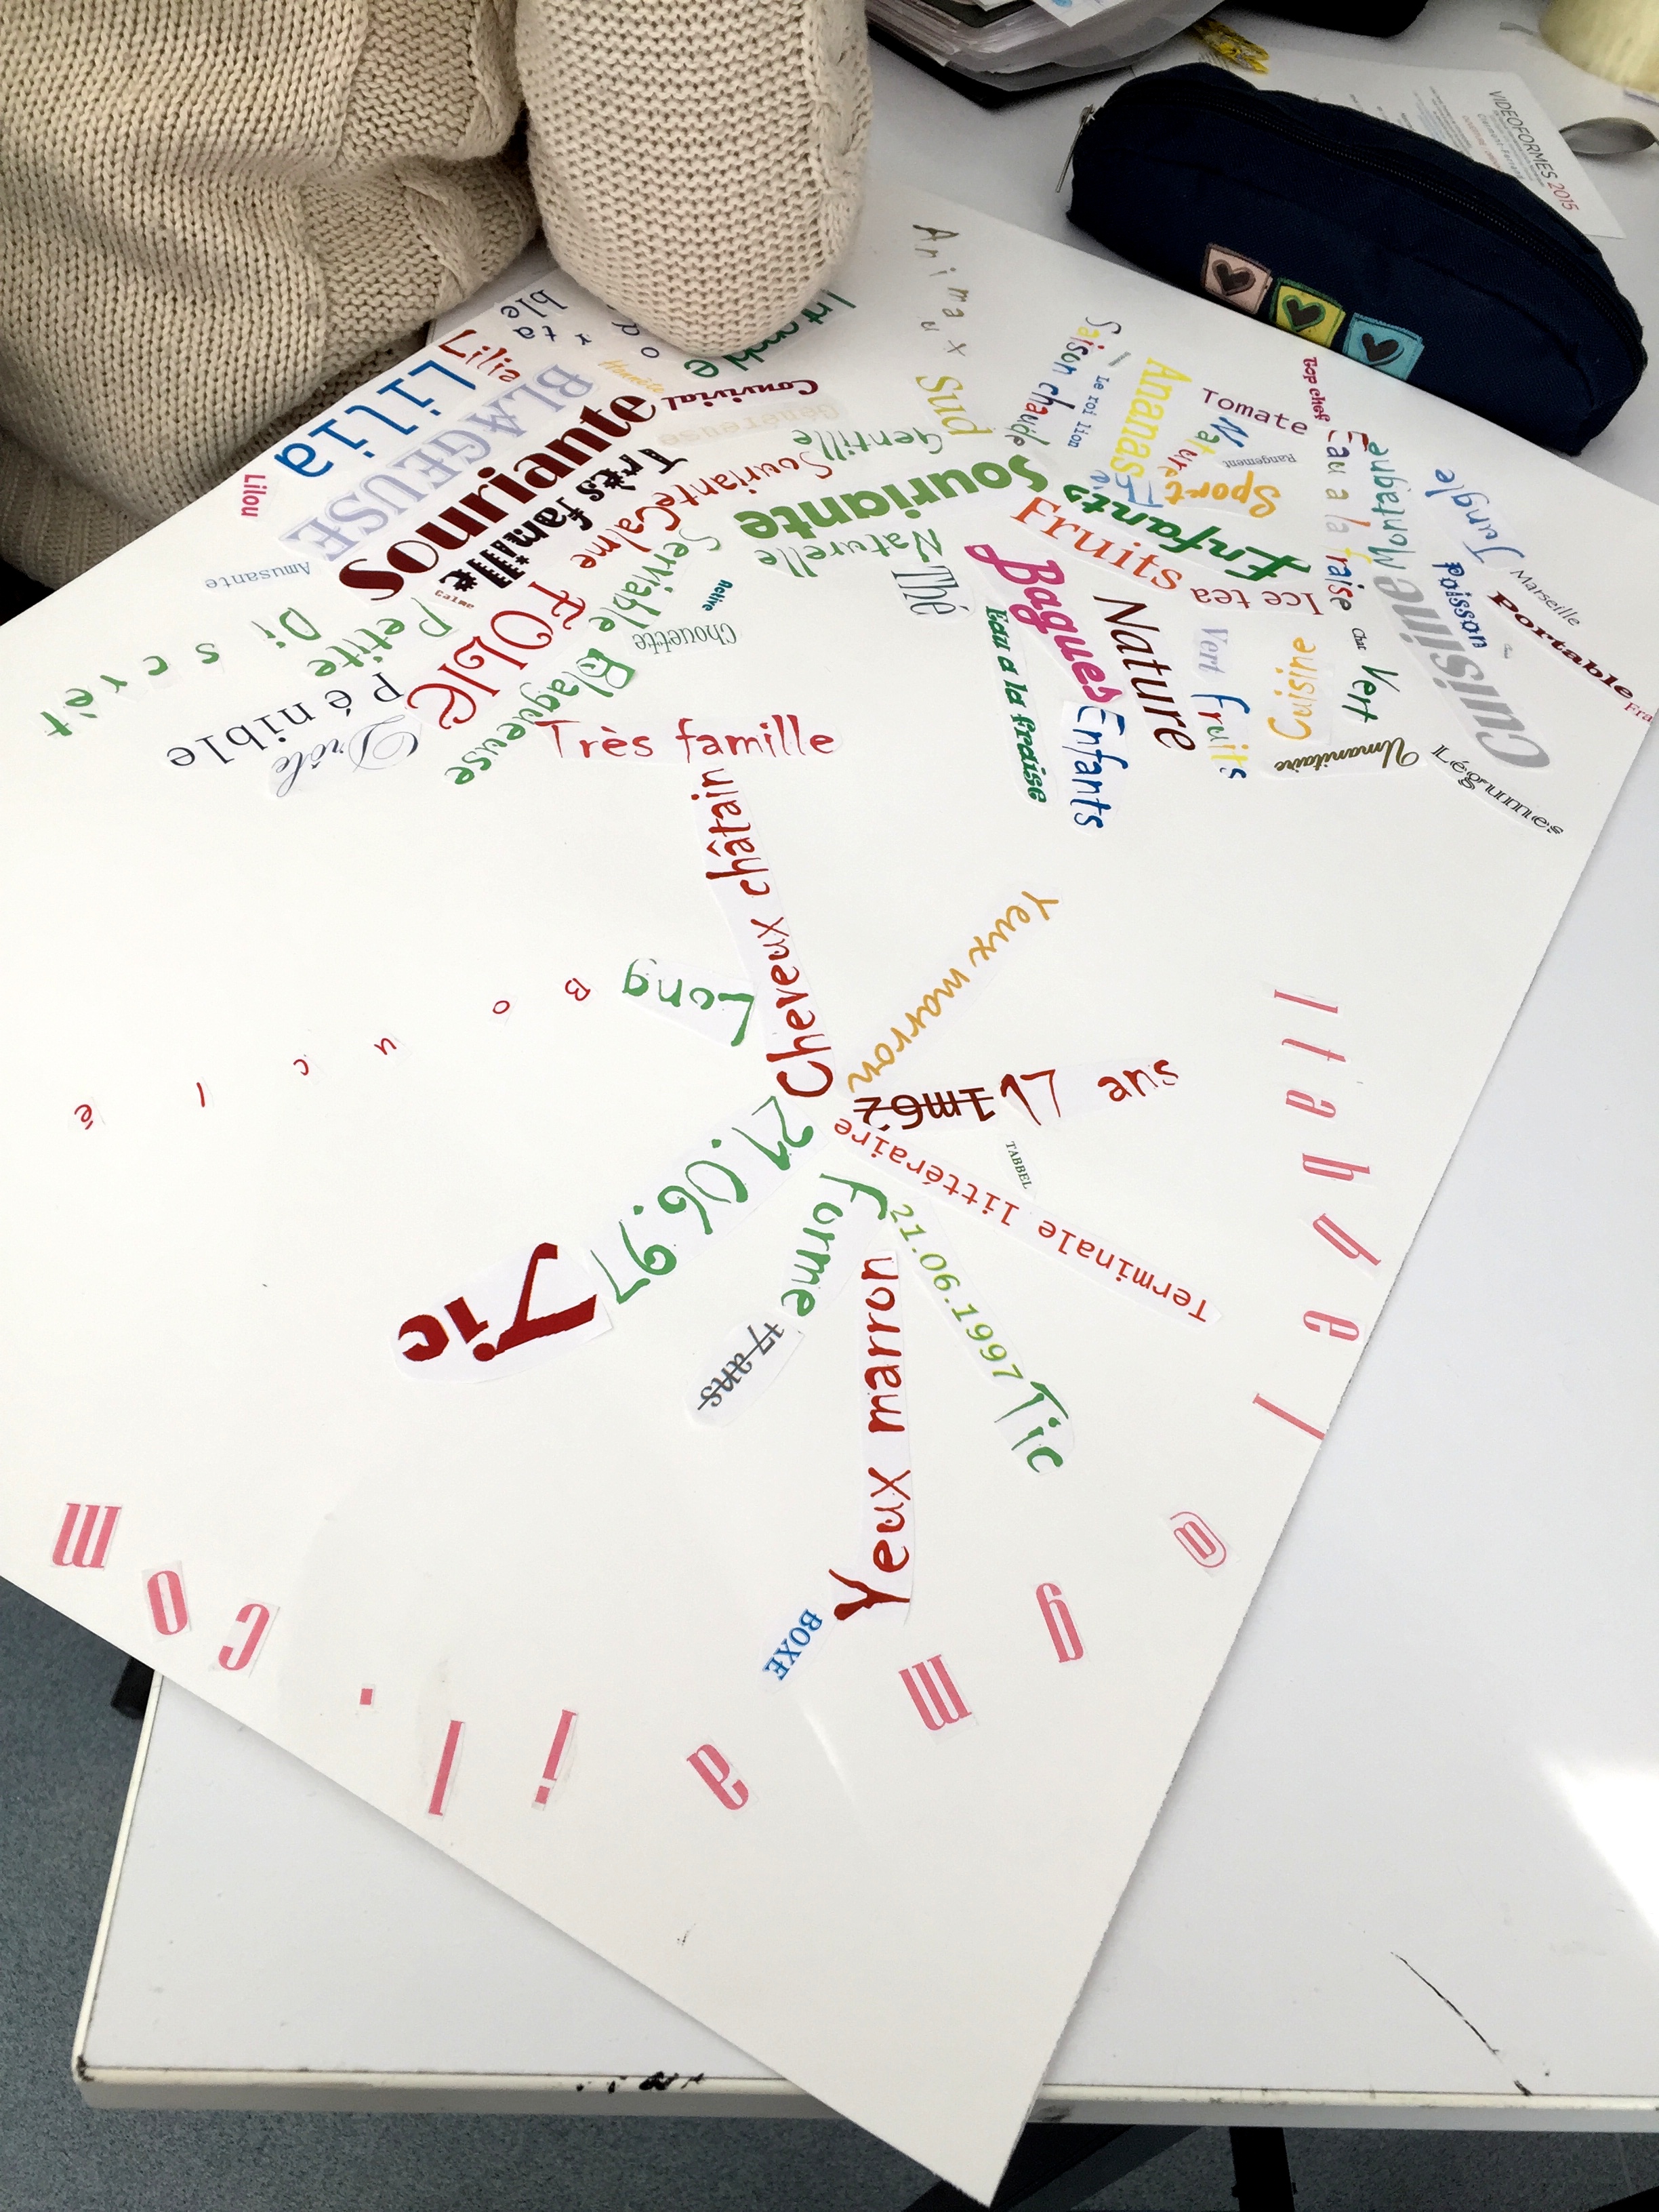 VIDEOFORMES 2015
Animaux
Sud
Saison chaude
Le roi lion
Ananas
Tomate
Top chef
Nature
Rangement
Sport
Eau a la fraise
Montauban
Jungle
Enfants
Fruits
Ice tea
Marseille
Poisson
Portable
Cuisine
Chat
Vert
Cuisine
Vert
fruits
Umanitaire
Légumes
Nature
Bagues
Eau a la fraise
Enfants
Thé
Lilia
Lilia
Lilou
BLAGEUSE
Souriante
Très famille
Convivial
Généreuse
Gentille
Souriante
Souriante
Calme
Calme
Serviable
Naturelle
Active
Chouette
Amusante
Discrét
Petite
FOLLE
Pénible
Drôle
Blagueuse
Très famille
Cheveux châtain
Long
Bouclé
Yeux marron
1m62
17 ans
TABBEL
Terminale littéraire
21.06.97
Tic
Forme
17 ans
21.06.1997
Tic
Yeux marron
BOXE
ltabbel@gmail.com